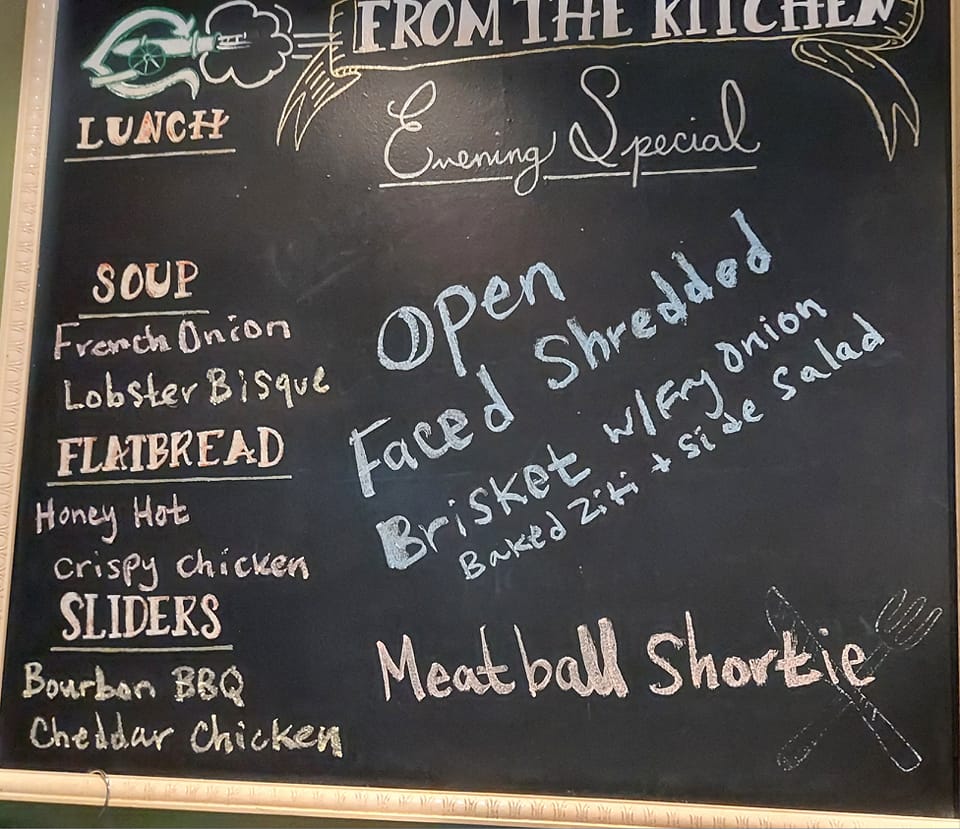 FROM THE KITCHEN
LUNCH
SOUP
French Onion
Lobster Bisque
FLATBREAD
Honey Hot
Crispy Chicken
SLIDERS
Bourbon BBQ
Cheddar Chicken
Evening Special
Open
Faced Shredded
Brisket w/Fry Onion
Baked Ziti + Side Salad
Meatball Shortie